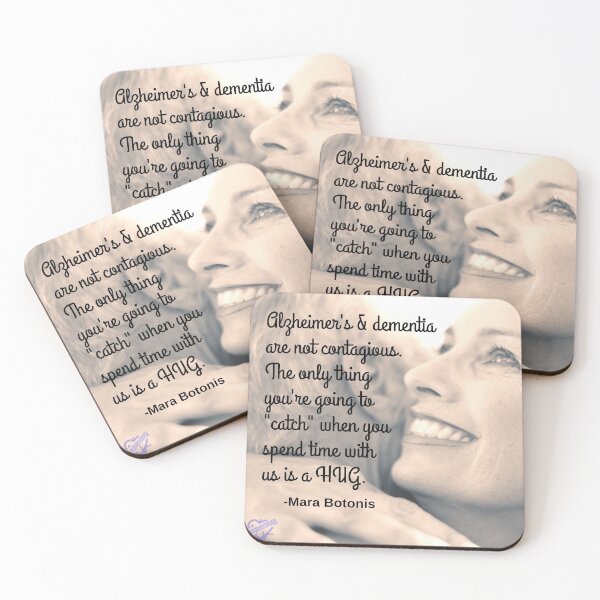 Alzheimer's & dementia
are not contagious.
The only thing
you're going to
"catch"
Alzheimer's & dementia
are not contagious.
The only thing
you're going to
"catch" when you
spend time with
us is a HUG.
Alzheimer's & dementia
are not contagious.
The only thing
you're going to
"catch" when you
spend time with
us is a HUG.
-Mara Botonis
Alzheimer's & dementia
are not contagious.
The only thing
you're going to
"catch" when you
spend time with
us is a HUG.
-Mara Botonis